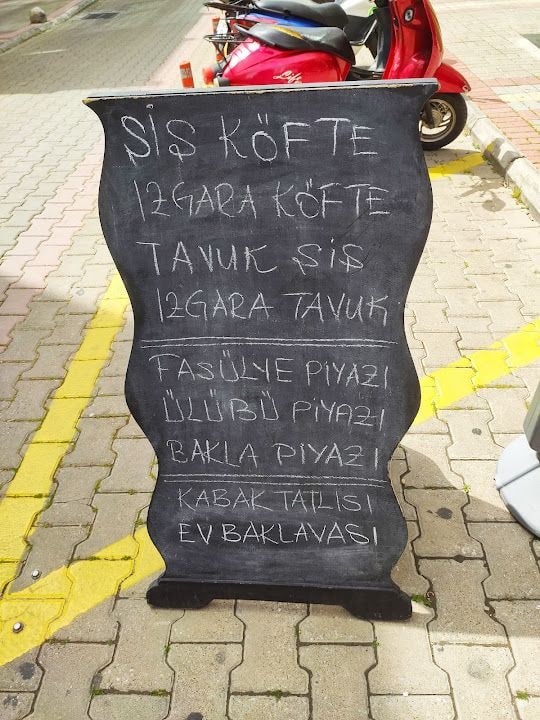 ŞİŞ KÖFTE
IZGARA KÖFTE
TAVUK ŞİŞ
IZGARA TAVUK
FASÜLYE PİYAZI
ÜLÜBÜ PİYAZI
BAKLA PİYAZI
KABAK TATLISI
EV BAKLAVASI
Life